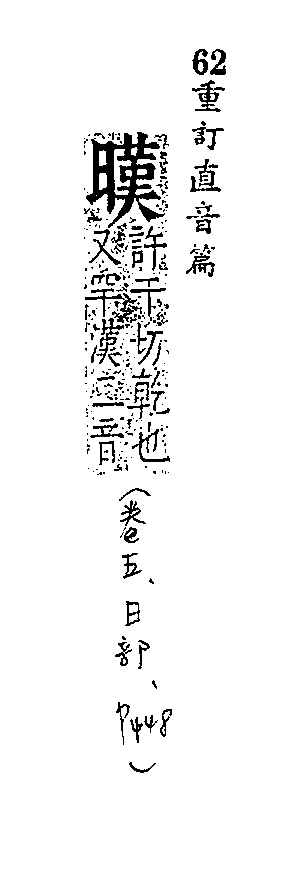 62重訂直音篇
暵許干切乾也
又罕漢二音
(卷五、日部、P448)